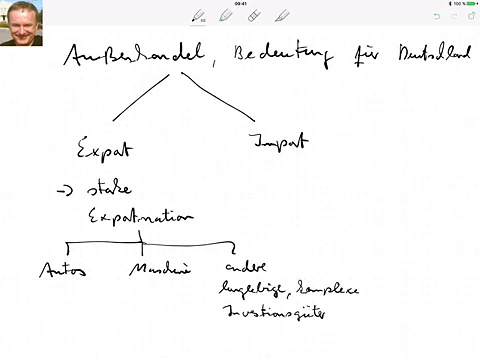 09:41
100 %
Außenhandel, Bedeutung für Deutschland
Export
Import
-> starke
Exportnation
Autos
Maschine
andere
langlebige, komplexe
Investionsgüter